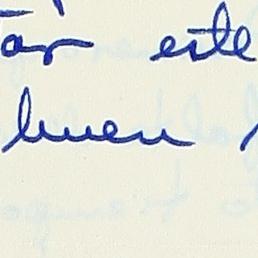 ar este
buen